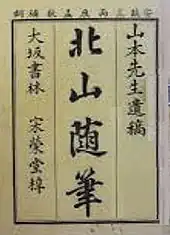 安政三丙辰孟秋
山本先生遺稿
北山随筆
大坂書林 宋榮堂梓